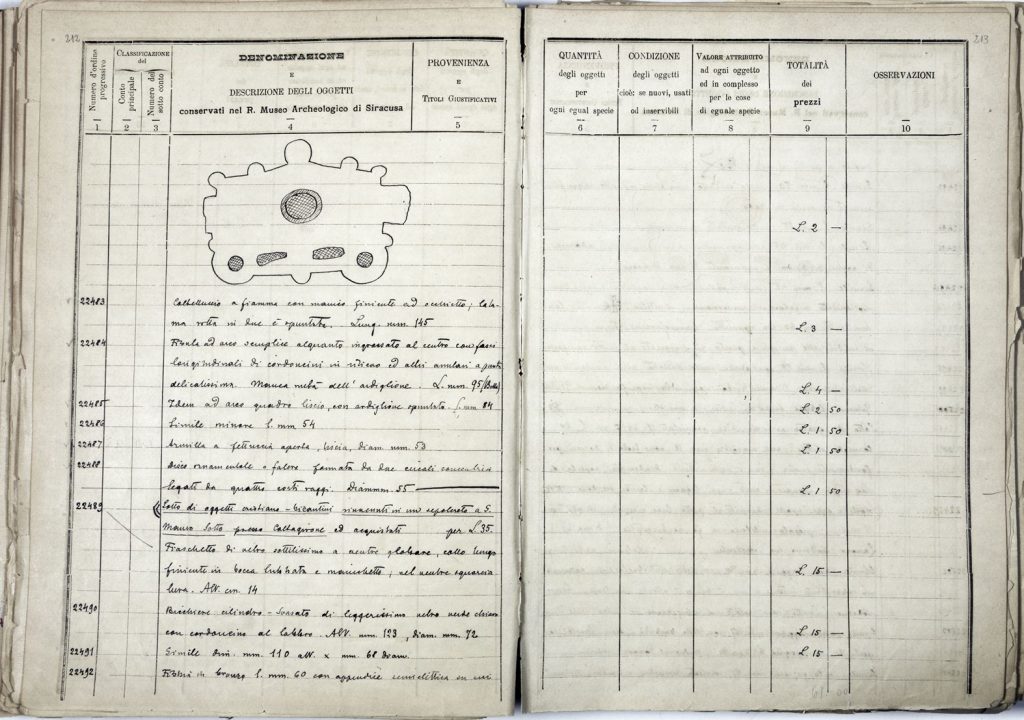 212
Numero d'ordine progressivo
CLASSIFICAZIONE
del
Conto principale
Numero del sotto conto
DENOMINAZIONE
E
DESCRIZIONE DEGLI OGGETTI
conservati nel R. Museo Archeologico di Siracusa
PROVENIENZA
E
TITOLI GIUSTIFICATIVI
1 2 3 4 5
22483 Coltelluccio a fiamma con manico finiente ad occhietto; la la-
ma rotta in due è spuntata. Lung. mm. 145
22484 Fibula ad arco semplice alquanto ingrossato al centro con fasci
longitudinali di cordoncini in rilievo ed altri anulari a punta
delicatissima. Manca metà dell'ardiglione. L. mm. 95
22485 Idem ad arco quadro liscio, con ardiglione spuntato. L. mm 84
22486 Simile minore l. mm 54
22487 Armilla a fettuccia aperta, liscia, diam. mm. 53
22488 Disco ornamentale o falera formata da due circoli concentrici
legati da quattro corti raggi. Diam mm. 55
22489 Lotto di oggetti cristiano-bizantini rinvenuti in un sepolcreto a S.
Mauro Sotto presso Caltagirone ed acquistati per L. 35.
Fiaschetto di vetro sottilissimo a ventre globare, collo lungo
finiente in bocca labbrata e manichetto; nel ventre squarcia
tura. Alt. cm. 14
22490 Bicchiere cilindro-svasato di leggerissimo vetro verde chiaro
con cordoncino al labbro. Alt. mm. 123, diam. mm. 72
22491 Simile dim. mm. 110 alt. x mm. 68 diam.
22492 Fibbia di bronzo l. mm. 60 con appendice semielittica in cui
213
QUANTITÀ
degli oggetti
per
ogni egual specie
CONDIZIONE
degli oggetti
cioè: se nuovi, usati
od inservibili
VALORE ATTRIBUITO
ad ogni oggetto
ed in complesso
per le cose
di eguale specie
TOTALITÀ
dei
prezzi
OSSERVAZIONI
6 7 8 9 10
L. 2 —
L. 3 —
L. 4 —
L. 2 50
L. 1 50
L. 1 50
L. 1 50
L. 15 —
L. 15 —
L. 15 —